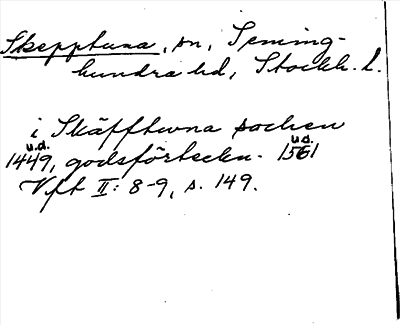 Skepptuna, sn, Seming-
hundra hd, Stockh. l.
i Skäfftwna sochen
u.d. u.d.
1449, godsförteckn. 1561
Vft II: 8-9, s. 149.